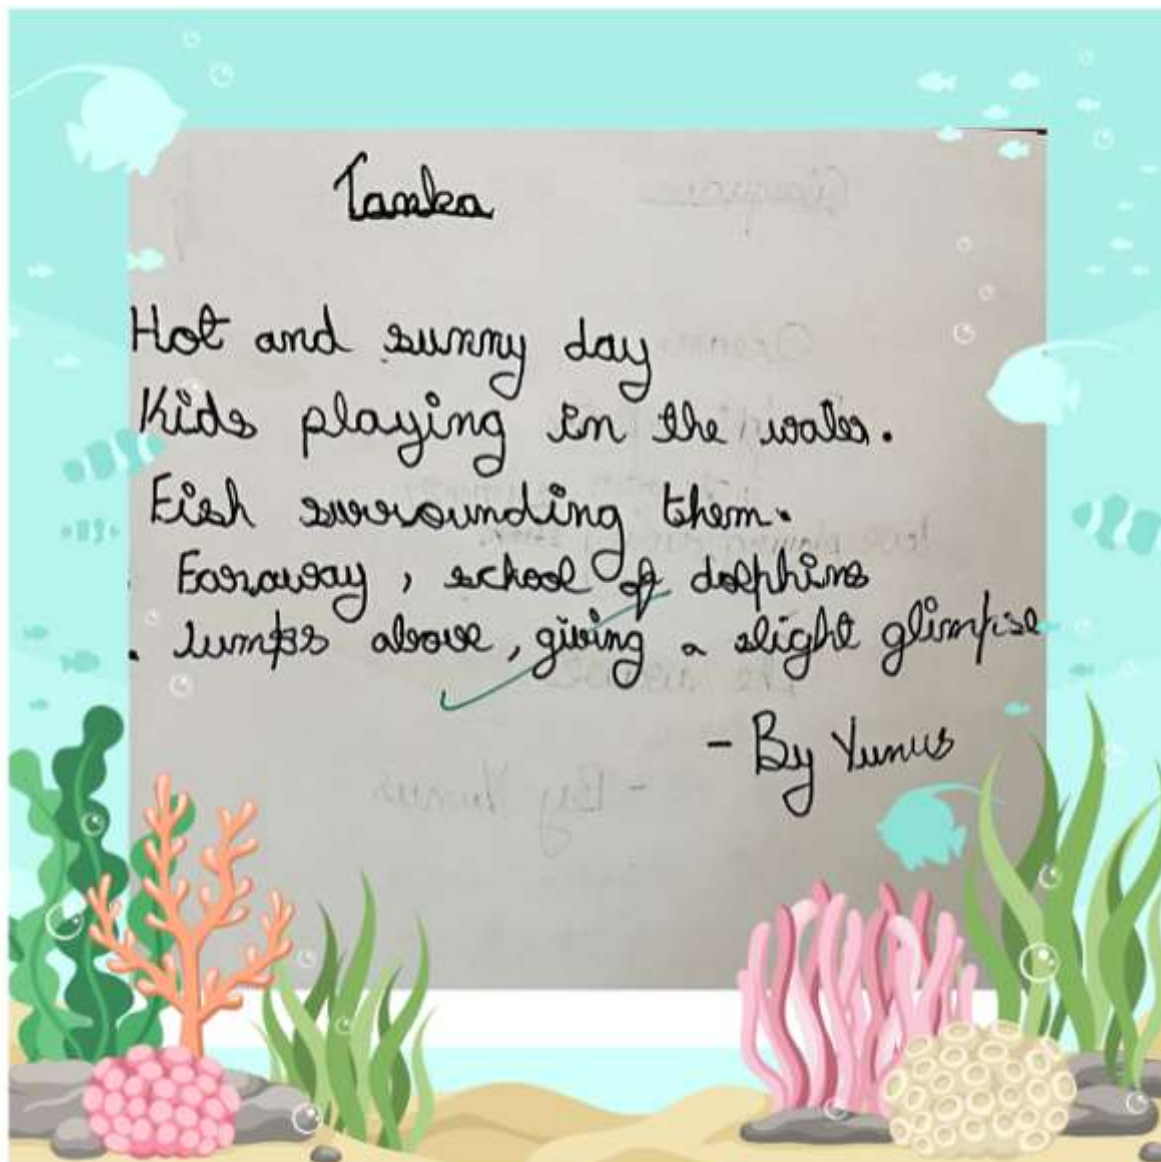 Tanka
Hot and sunny day
Kids playing in the water.
Fish surrounding them.
Faraway, school of dolphins
Jumps above, giving a slight glimpse
- By Yunus